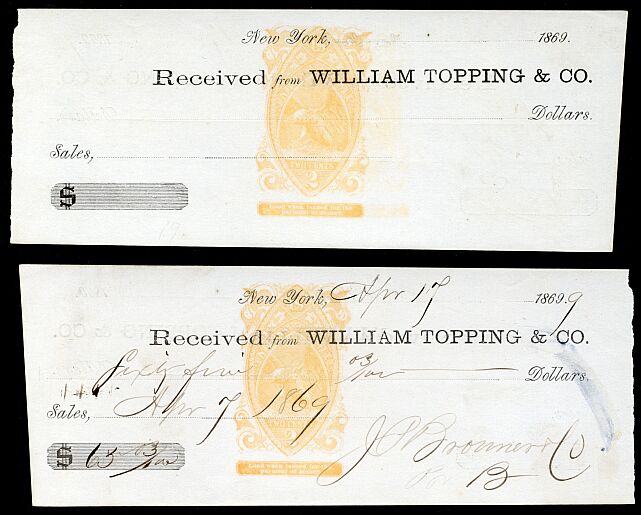 New York, 1869.
Received from WILLIAM TOPPING & CO.
Dollars.
Sales,
TWO CENTS
2
$
Good when issued for the
payment of money.
New York, Apr 17 1869.9
Received from WILLIAM TOPPING & CO.
Sixty five 03/100 Dollars.
Sales, Apr 7 1869
2
$ 65 03/100
J P Bronner & Co
B
Good when issued for the
payment of money.